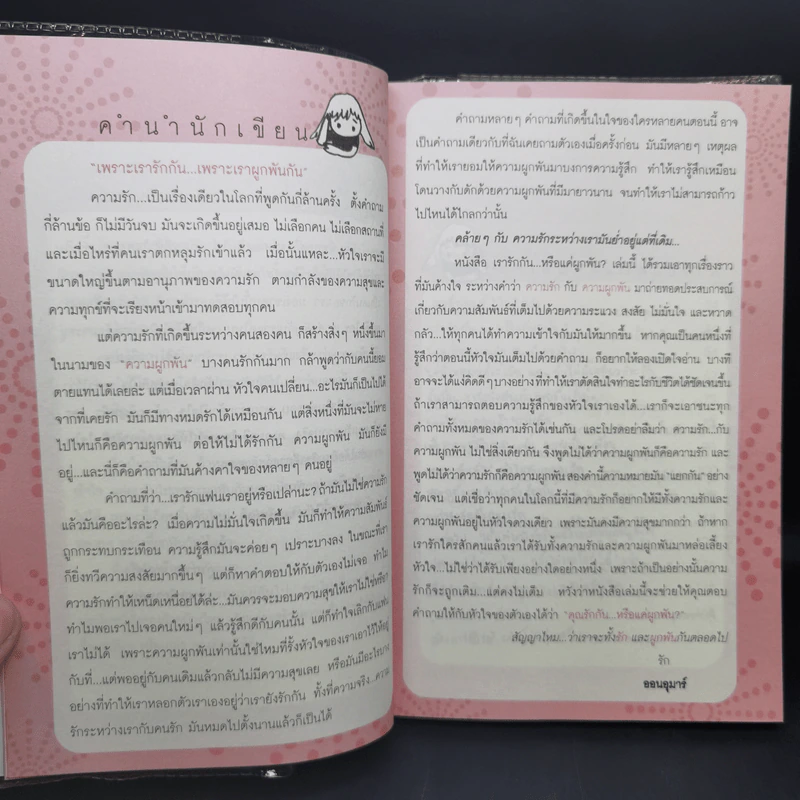 คำนำนักเขียน
"เพราะเรารักกัน...เพราะเราผูกพันกัน"
ความรัก...เป็นเรื่องเดียวในโลกที่พูดกันกี่ล้านครั้ง ตั้งคำถาม
กี่ล้านข้อ ก็ไม่มีวันจบ มันจะเกิดขึ้นอยู่เสมอ ไม่เลือกคน ไม่เลือกสถานที่
และเมื่อไหร่ที่คนเราตกหลุมรักเข้าแล้ว เมื่อนั้นแหละ...หัวใจเราจะมี
ขนาดใหญ่ขึ้นตามอานุภาพของความรัก ตามกำลังของความสุขและ
ความทุกข์ที่จะเรียงหน้าเข้ามาทดสอบทุกคน
แต่ความรักที่เกิดขึ้นระหว่างคนสองคน ก็สร้างสิ่งๆ หนึ่งขึ้นมา
ในนามของ "ความผูกพัน" บางคนรักกันมาก กล้าพูดว่ากับคนนี้ยอม
ตายแทนได้เลยล่ะ แต่เมื่อเวลาผ่าน หัวใจคนเปลี่ยน...อะไรมันก็เป็นไปได้
จากที่เคยรัก มันก็มีทางหมดรักได้เหมือนกัน แต่สิ่งหนึ่งที่มันจะไม่หาย
ไปไหนก็คือความผูกพัน ต่อให้ไม่ได้รักกัน ความผูกพัน มันก็ยังมี
อยู่...และนี่ก็คือคำถามที่มันค้างคาใจของหลายๆ คนอยู่
คำถามที่ว่า...เรารักแฟนเราอยู่หรือเปล่านะ? ถ้ามันไม่ใช่ความรัก
แล้วมันคืออะไรล่ะ? เมื่อความไม่มั่นใจเกิดขึ้น มันก็ทำให้ความสัมพันธ์
ถูกกระทบกระเทือน ความรู้สึกมันจะค่อยๆ เปราะบางลง ในขณะที่เรา
ก็ยิ่งทวีความสงสัยมากขึ้นๆ แต่ก็หาคำตอบให้กับตัวเองไม่เจอ ทำไม
ความรักทำให้เหน็ดเหนื่อยได้ล่ะ...มันควรจะมอบความสุขให้เราไม่ใช่หรือ?
ทำไมพอเราไปเจอคนใหม่ๆ แล้วรู้สึกดีกับคนนั้น แต่ก็ทำใจเลิกกับแฟน
เราไม่ได้ เพราะความผูกพันเท่านั้นใช่ไหมที่รั้งหัวใจของเราเอาไว้ให้อยู่
กับที่...แต่พออยู่กับคนเดิมแล้วกลับไม่มีความสุขเลย หรือมันมีอะไรบาง
อย่างที่ทำให้เราหลอกตัวเราเองอยู่ว่าเรายังรักกัน ทั้งที่ความจริง...ความ
รักระหว่างเรากับคนรัก มันหมดไปตั้งนานแล้วก็เป็นได้
คำถามหลายๆ คำถามที่เกิดขึ้นในใจของใครหลายคนตอนนี้ อาจ
เป็นคำถามเดียวกับที่ฉันเคยถามตัวเองเมื่อครั้งก่อน มันมีหลายๆ เหตุผล
ที่ทำให้เรายอมให้ความผูกพันมาบงการความรู้สึก ทำให้เรารู้สึกเหมือน
โดนวางกับดักด้วยความผูกพันที่มีมายาวนาน จนทำให้เราไม่สามารถก้าว
ไปไหนได้ไกลกว่านั้น
คล้ายๆ กับ ความรักระหว่างเรามันย่ำอยู่แต่ที่เดิม...
หนังสือ เรารักกัน...หรือแค่ผูกพัน? เล่มนี้ ได้รวมเอาทุกเรื่องราว
ที่มันค้างใจ ระหว่างคำว่า ความรัก กับ ความผูกพัน มาถ่ายทอดประสบการณ์
เกี่ยวกับความสัมพันธ์ที่เต็มไปด้วยความระแวง สงสัย ไม่มั่นใจ และหวาด
กลัว...ให้ทุกคนได้ทำความเข้าใจกับมันให้มากขึ้น หากคุณเป็นคนหนึ่งที่
รู้สึกว่าตอนนี้หัวใจมันเต็มไปด้วยคำถาม ก็อยากให้ลองเปิดใจอ่าน บางที
อาจจะได้แง่คิดดีๆ บางอย่างที่ทำให้เราตัดสินใจทำอะไรกับชีวิตได้ชัดเจนขึ้น
ถ้าเราสามารถตอบความรู้สึกของหัวใจเราเองได้...เราก็จะเอาชนะทุก
คำถามทั้งหมดของความรักได้เช่นกัน และโปรดอย่าลืมว่า ความรัก...กับ
ความผูกพัน ไม่ใช่สิ่งเดียวกัน จึงพูดไม่ได้ว่าความผูกพันก็คือความรัก และ
พูดไม่ได้ว่าความรักก็คือความผูกพัน สองคำนี้ความหมายมัน "แยกกัน" อย่าง
ชัดเจน แต่เชื่อว่าทุกคนในโลกนี้ที่มีความรักก็อยากให้มีทั้งความรักและ
ความผูกพันอยู่ในหัวใจดวงเดียว เพราะมันคงมีความสุขมากกว่า ถ้าหาก
เรารักใครสักคนแล้วเราได้รับทั้งความรักและความผูกพันมาหล่อเลี้ยง
หัวใจ...ไม่ใช่ว่าได้รับเพียงอย่างใดอย่างหนึ่ง เพราะถ้าเป็นอย่างนั้นความ
รักก็จะถูกเติม...แต่คงไม่เต็ม หวังว่าหนังสือเล่มนี้จะช่วยให้คุณตอบ
คำถามให้กับหัวใจของตัวเองได้ว่า "คุณรักกัน...หรือแค่ผูกพัน?"
สัญญาไหม...ว่าเราจะทั้งรัก และผูกพันกันตลอดไป
รัก
ออนอุมาร์